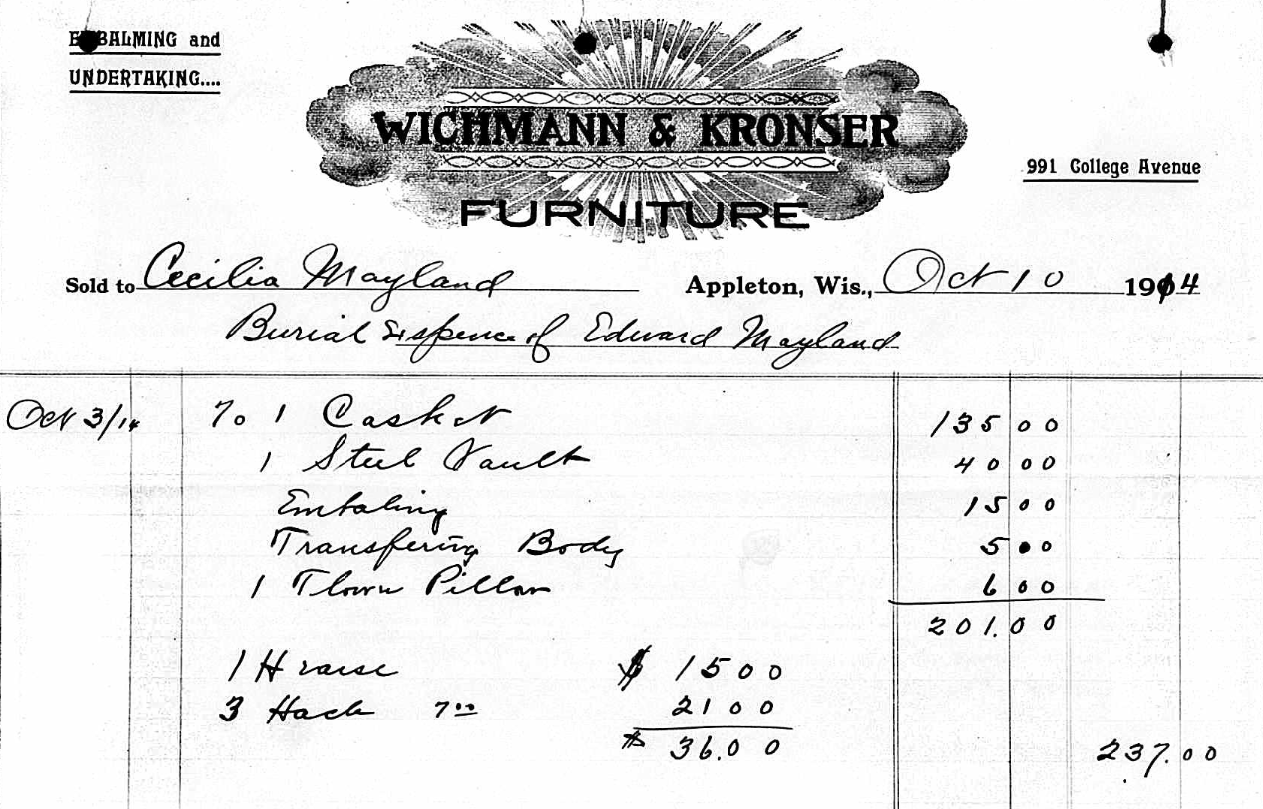 EMBALMING and
UNDERTAKING....
WICHMANN & KRONSER
FURNITURE
991 College Avenue
Sold to Cecilia Mayland Appleton, Wis., Oct 10 1914
Burial Expence of Edward Mayland
Oct 3/14 To 1 Casket 135 00
1 Steel Vault 40 00
Embaling 15 00
Transfering Body 5 00
1 Flowr Pillow 6 00
201.00
1 Hraise $ 15 00
3 Hack 7 00 21 00
$ 36.00 237.00